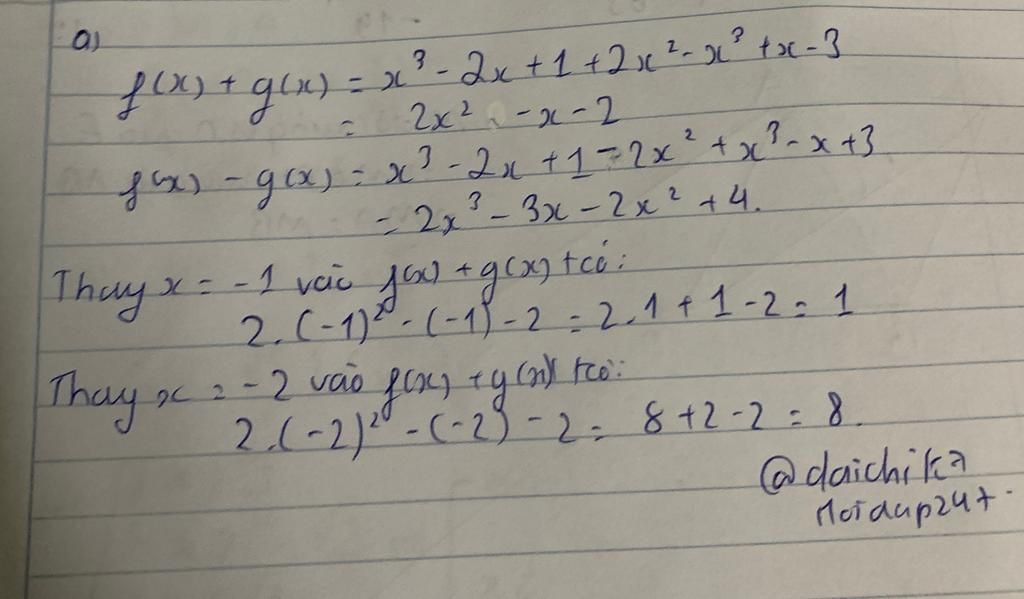 a)
f(x) + g(x) = x³ - 2x + 1 + 2x² - x³ + x - 3
= 2x² - x - 2
f(x) - g(x) = x³ - 2x + 1 - 2x² + x³ - x + 3
= 2x³ - 3x - 2x² + 4.
Thay x = -1 vào f(x) + g(x) tcó:
2.(-1)² - (-1) - 2 = 2.1 + 1 - 2 = 1
Thay x = -2 vào f(x) + g(x) tcó:
2.(-2)² - (-2) - 2 = 8 + 2 - 2 = 8.
@daichik7
hoidap247